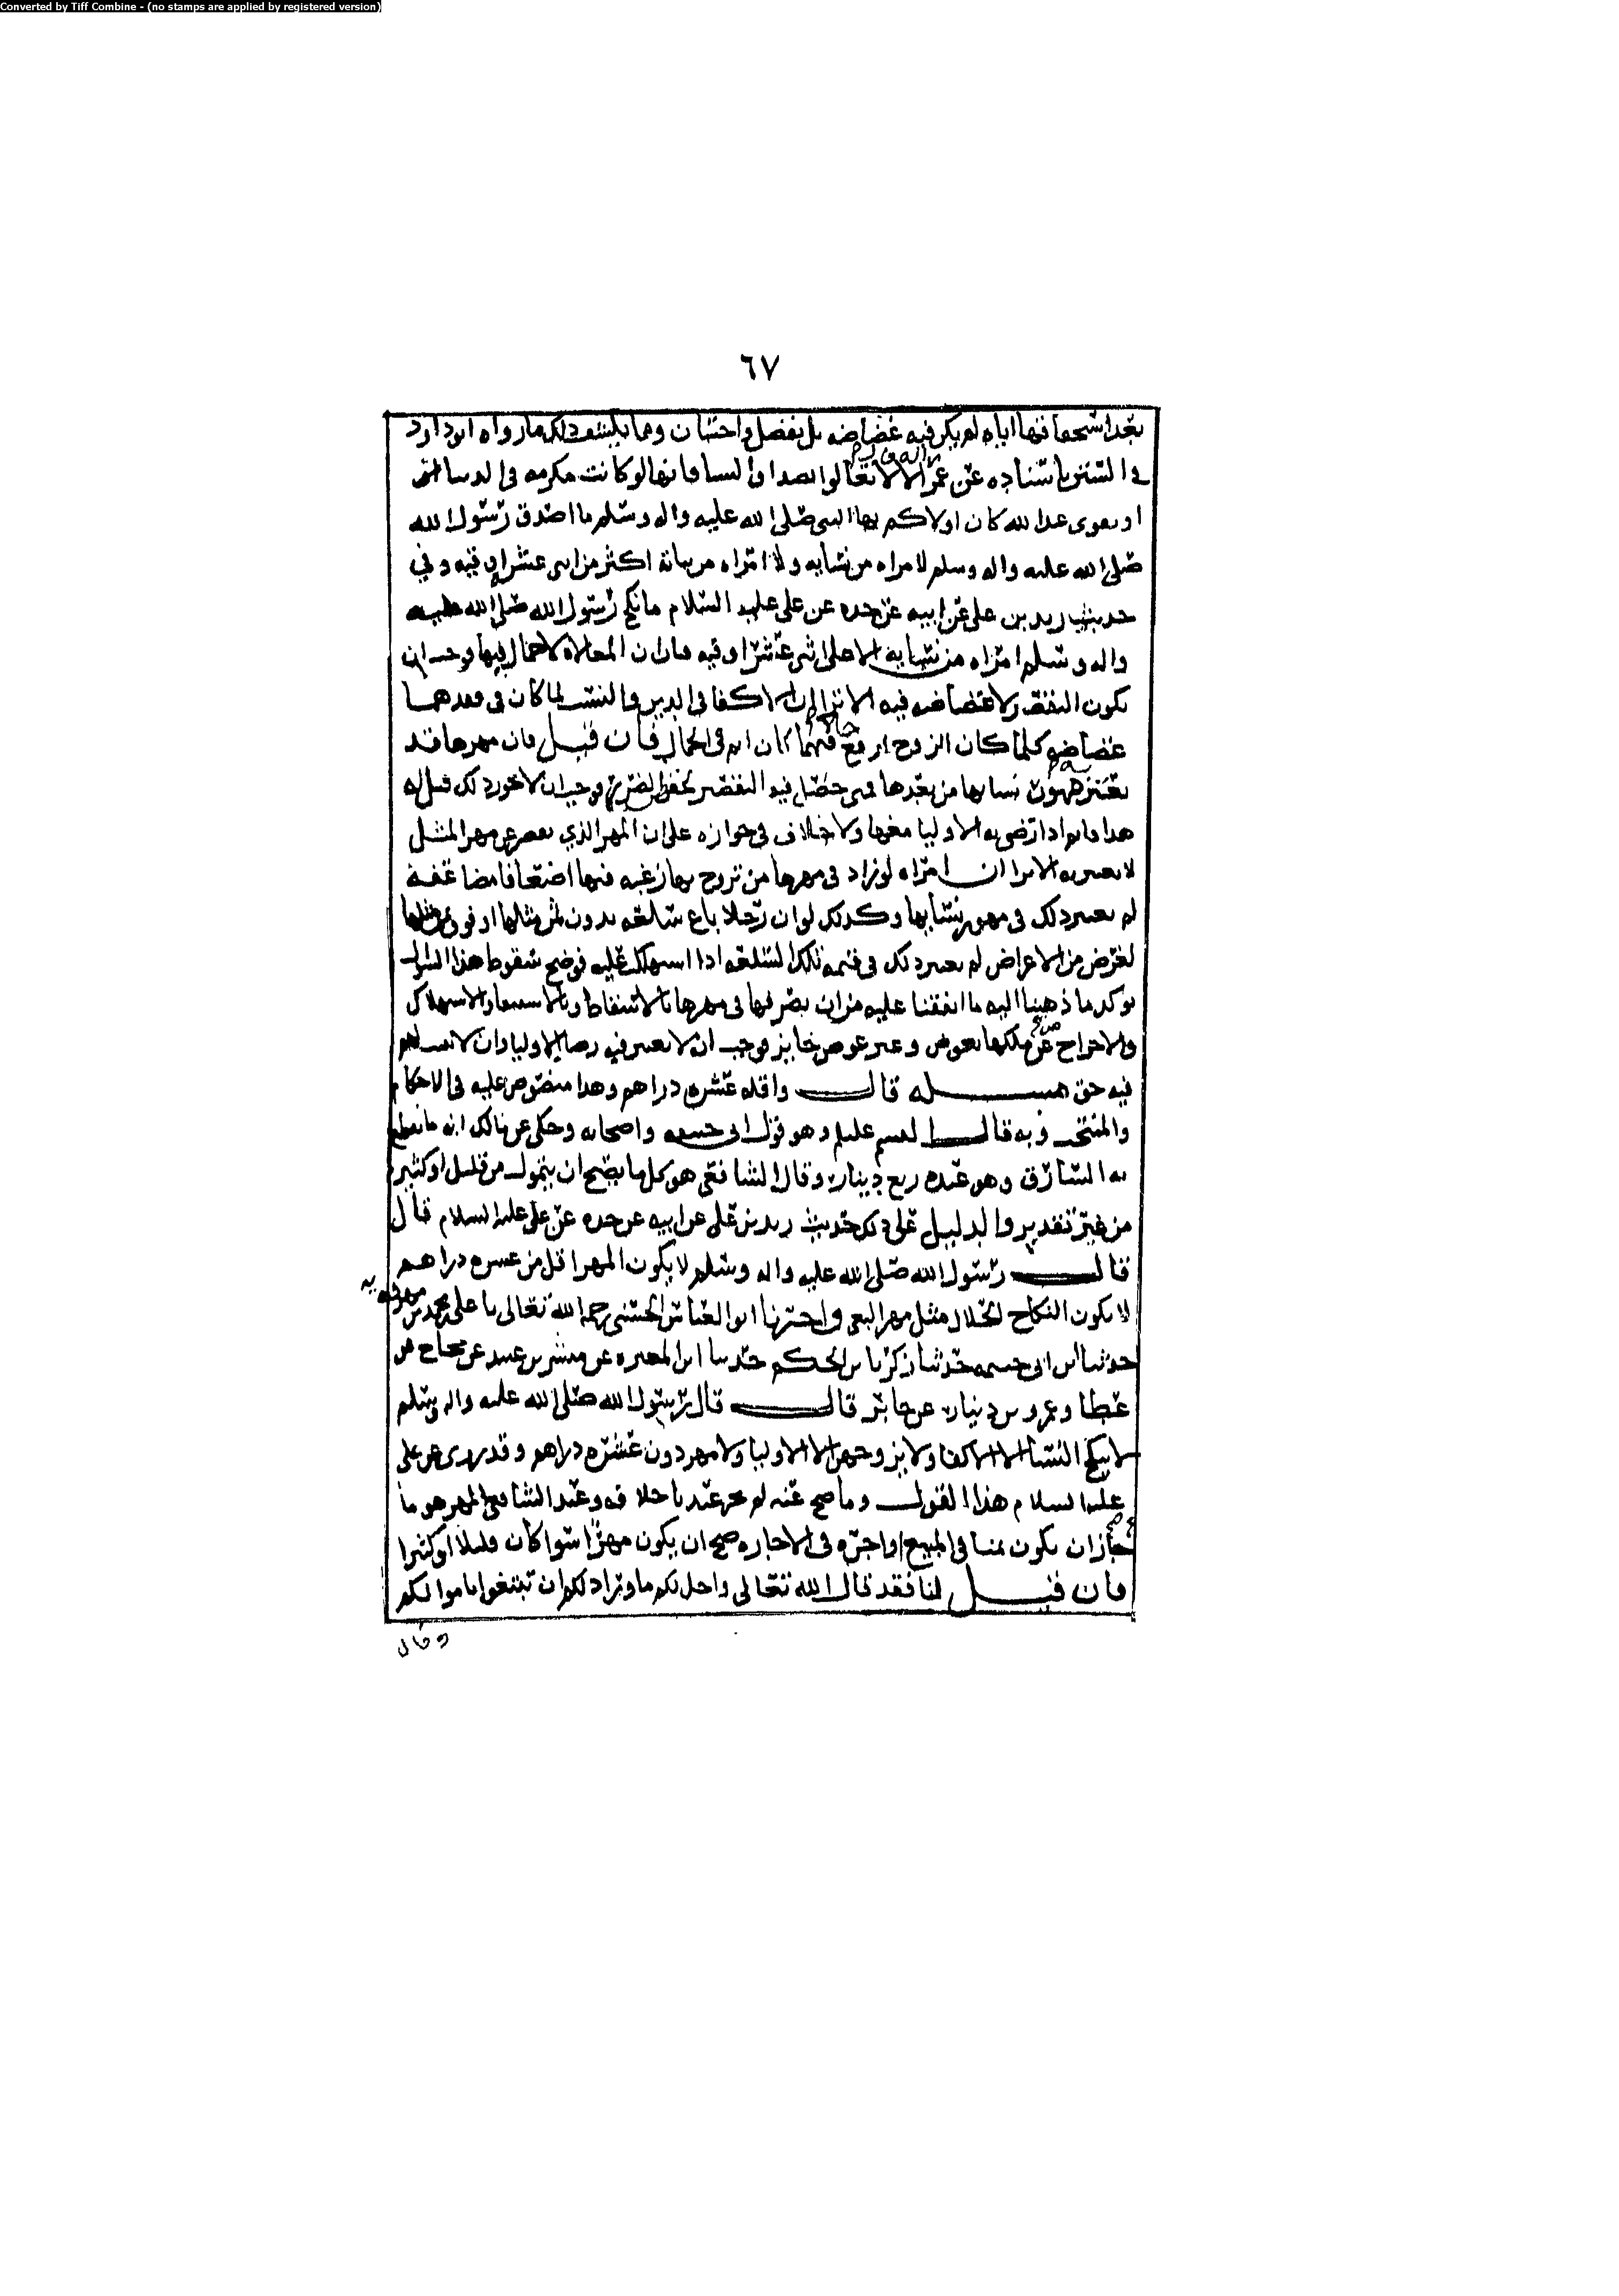 Converted by Tiff Combine - (no stamps are applied by registered version)
٦٧
بعد استحقاقها اياه لم يكن فيه غضاضه بل تفضل واحسان ومما يكشف ذلك ما رواه ابو داود
في السنن باسناده عن عمر الا لا تغالوا بصداق النسا فانها لو كانت مكرمه في الدنيا
او تقوى عند الله كان اولاكم بها النبي صلى الله عليه واله وسلم ما اصدق رسول الله
صلى الله عليه واله وسلم لامراه من نسايه ولا امراه من بناته اكثر من اثنى عشر اوقيه وفي
حديث زيد بن علي عن ابيه عن جده عن علي عليه السلام ما نكح رسول الله صلى الله عليه
واله وسلم امراه من نسايه الا على اثنى عشر اوقيه فبان ان المغالاه لا جمال فيها وجب ان
يكون النقص لا غضاضه فيه الا ترا ان الاكفا في الدين والنسب لما كان في فقدهما
غضاضه كلما كان الزوج ارفع حالا فيهما كان اتم في الجمال فان قيل فان مهرها قد
يعتبر بمهور نسايها من بعدها فمتى حصل فيه النقص لحقهن الضرر فوجب ان لا يجوز ذلك قيل له
هذا فاسد اذا رضي به الاوليا معها ولا خلاف في جوازه على ان المهر الذي يقصر عن مهر المثل
لا يعتبر به الا ترا ان امراه لو زاد في مهرها من تزوج بها رغبه فيها اضعافا مضاعفه
لم يعتبر ذلك في مهور نسايها وكذلك لو ان رجلا باع سلعه بدون ثمن مثلها او فوق ثمن مثلها
لغرض من الاغراض لم يعتبر ذلك في قيمه تلك السلعه اذا استهلكت عليه فوضح سقوط هذا السؤال
يوكد ما ذهبنا اليه ما اتفقنا عليه من ان تصرفها في مهرها بالاسقاط وبالاستيفا والاستهلاك
والاخراج عن ملكها بعوض وغير عوض جايز فوجب ان لا يعتبر فيه رضا الاوليا وان لا يثبت لهم
فيه حق مسله قال واقله عشره دراهم وهذا منصوص عليه في الاحكام
والمنتخب وبه قال القسم عليلم وهو قول ابي حنيفه واصحابه وحكى عن مالك انه ما يقطع
به السارق وهو عنده ربع دينار وقال الشافعي هو كل ما يصح ان يتمول من قليل او كثير
من غير تقدير والدليل على ذلك حديث زيد بن علي عن ابيه عن جده عن علي عليه السلام قال
قال رسول الله صلى الله عليه واله وسلم لا يكون المهر اقل من عشره دراهم
لا يكون النكاح الحلال مثل مهر البغي واخبرنا ابو العباس الحسني رحمه الله تعالى نا علي بن محمد بن مهرويه
حدثنا ابن ابي خيثمه حدثنا زكريا بن الحكم حدثنا ابو المغيره عن مبشر بن عبيد عن حجاج عن
عطا وعمرو بن دينار عن جابر قال قال رسول الله صلى الله عليه واله وسلم
لا ينكح النسا الا الاكفا ولا يزوجهن الا الاوليا ولا مهر دون عشره دراهم وقد روى عن علي
عليه السلام هذا القول وما صح عنه لم يجز عندنا خلافه وعند الشافعي المهر هو ما
جاز ان يكون ثمنا في المبيع او اجره في الاجاره صح ان يكون مهرا سوا كان قليلا او كثيرا
فان قيل لنا فقد قال الله تعالى واحل لكم ما ورا ذلكم ان تبتغوا باموالكم
وقال